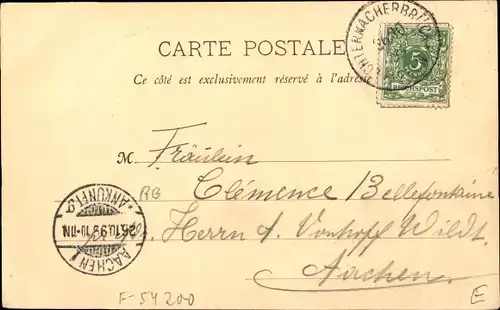 CARTE POSTALE
Ce côté est exclusivement réservé à l'adresse
ECHTERNACHERBRÜCK
5
REICHSPOST
M. Fräulein
Clémence Bellefontaine
Herrn Vonhoff Wildt
Aachen.
AACHEN 1
ANKUNFT.
RB
F-54200
E